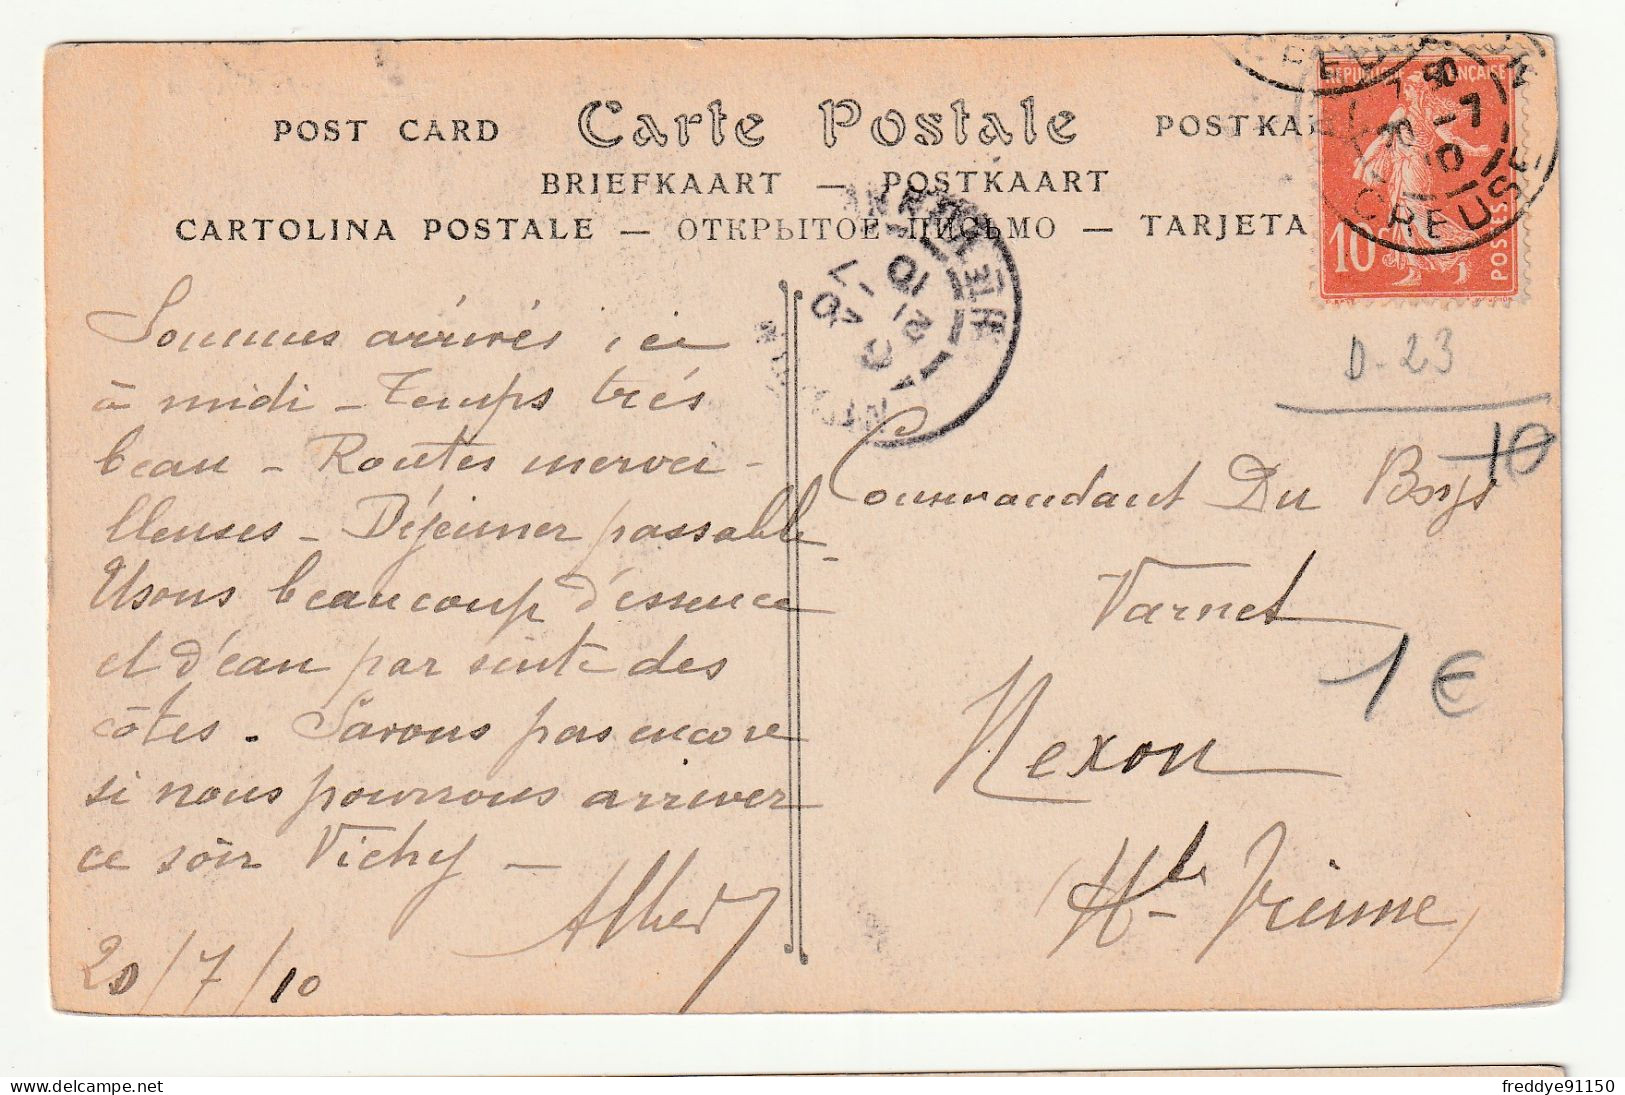 POST CARD Carte Postale POSTKA
BRIEFKAART — POSTKAART
CARTOLINA POSTALE — ОТКРЫТОЕ ПИСЬМО — TARJETA
RÉPUBLIQUE FRANÇAISE
10c
POSTES
CREUSE
20 -7
10
HTE VIENNE
D-23
10
1 €
Sommes arrivés ici
à midi - Temps très
beau - Routes mervei-
lleuses - Déjeuner passable -
Usons beaucoup d'essence
et d'eau par suite des
côtes. Savons pas encore
si nous pourrons arriver
ce soir Vichy -
Albert
20/7/10
Commandant Du Boys
Varnet
Nexon
Hte Vienne
freddye91150